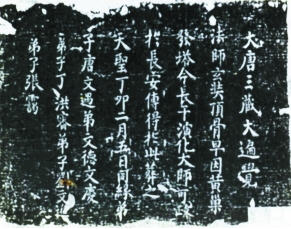 大唐三藏大遍覺
法師玄奘頂骨早因黃巢
發塔今長干演化大師可政
於長安傳得於此葬之
天聖丁卯二月五日同緣弟
子唐文遇弟文德文慶
弟子丁洪審弟子
弟子張靄